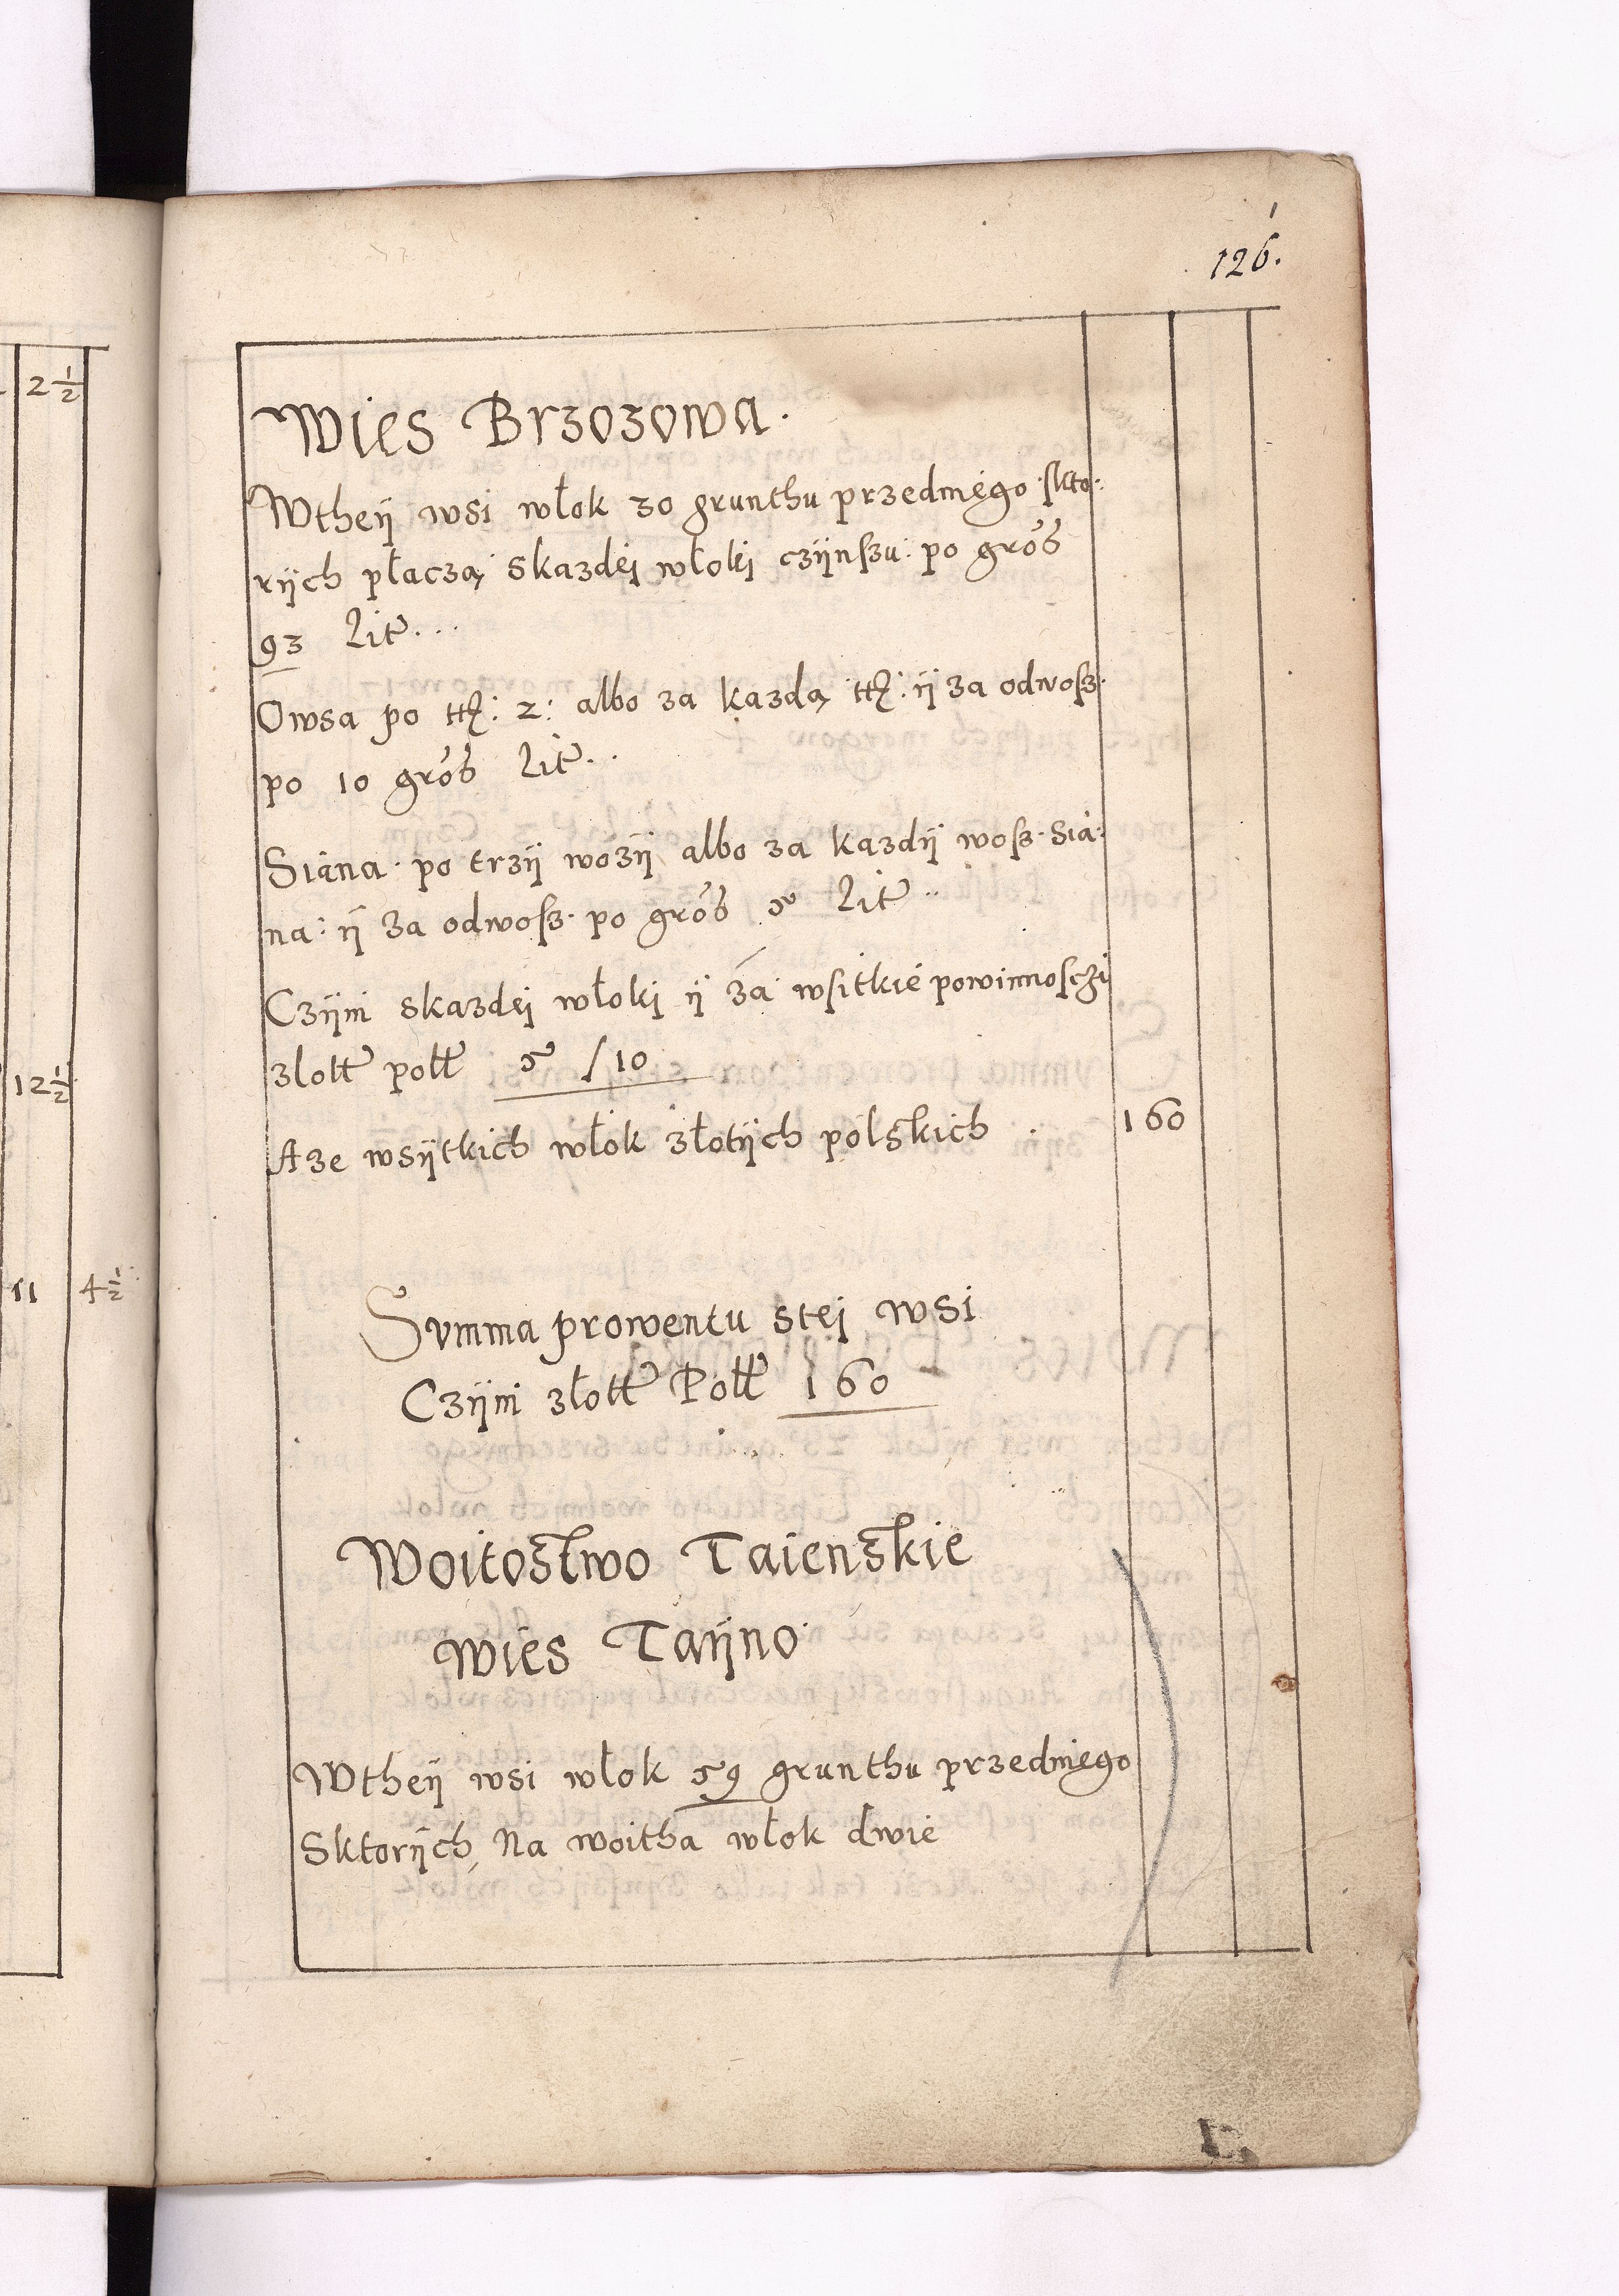 126.
2 1/2
Wies Brzozowa.
Wtheÿ wsi włok 30 grunthu przedniego skto:
rÿch płaczą skazdej włoki czÿnszu po gros
93 Lit...
Owsa po : 2: albo za kazdą ÿ za odwosz.
po 10 gros Lit..
Siana po trzÿ wozÿ albo za kazdÿ wosz sia:
na: ÿ za odwosz. po gros 5 Lit..
Czÿni skazdej włoki ÿ za wsitkie powinnosczi
zlott poll 5 /10
12 1/2
Aze wsÿtkich włok złotÿch polskich . 160
11 4 1/2
Summa prowentu stej wsi
Czÿni złott Poll 160
Woitostwo Taienskie
Wies Taÿno
Wtheÿ wsi włok 59 grunthu przedniego
Sktorÿch, Na woitha włok dwie